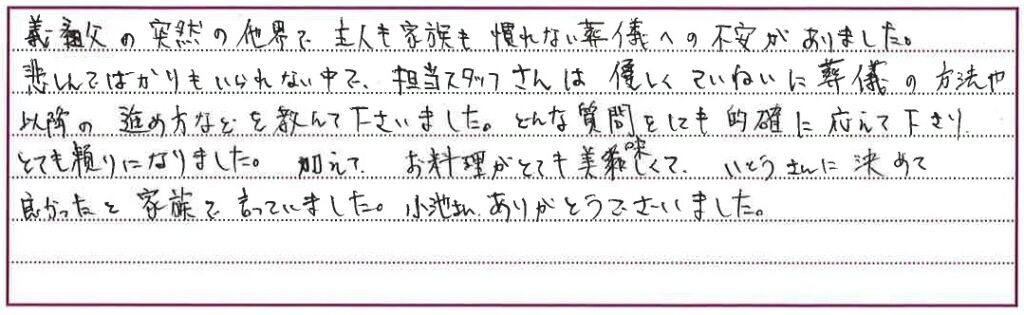 義祖父の突然の他界で主人も家族も慣れない葬儀への不安がありました。
悲しんでばかりもいられない中で、担当スタッフさんは優しくていねいに葬儀の方法や
以降の進め方などを教えて下さいました。どんな質問をしても的確に応えて下さり
とても頼りになりました。加えて、お料理がとても美味しくて、いとうさんに決めて
良かったと家族で言っていました。小池さん、ありがとうございました。